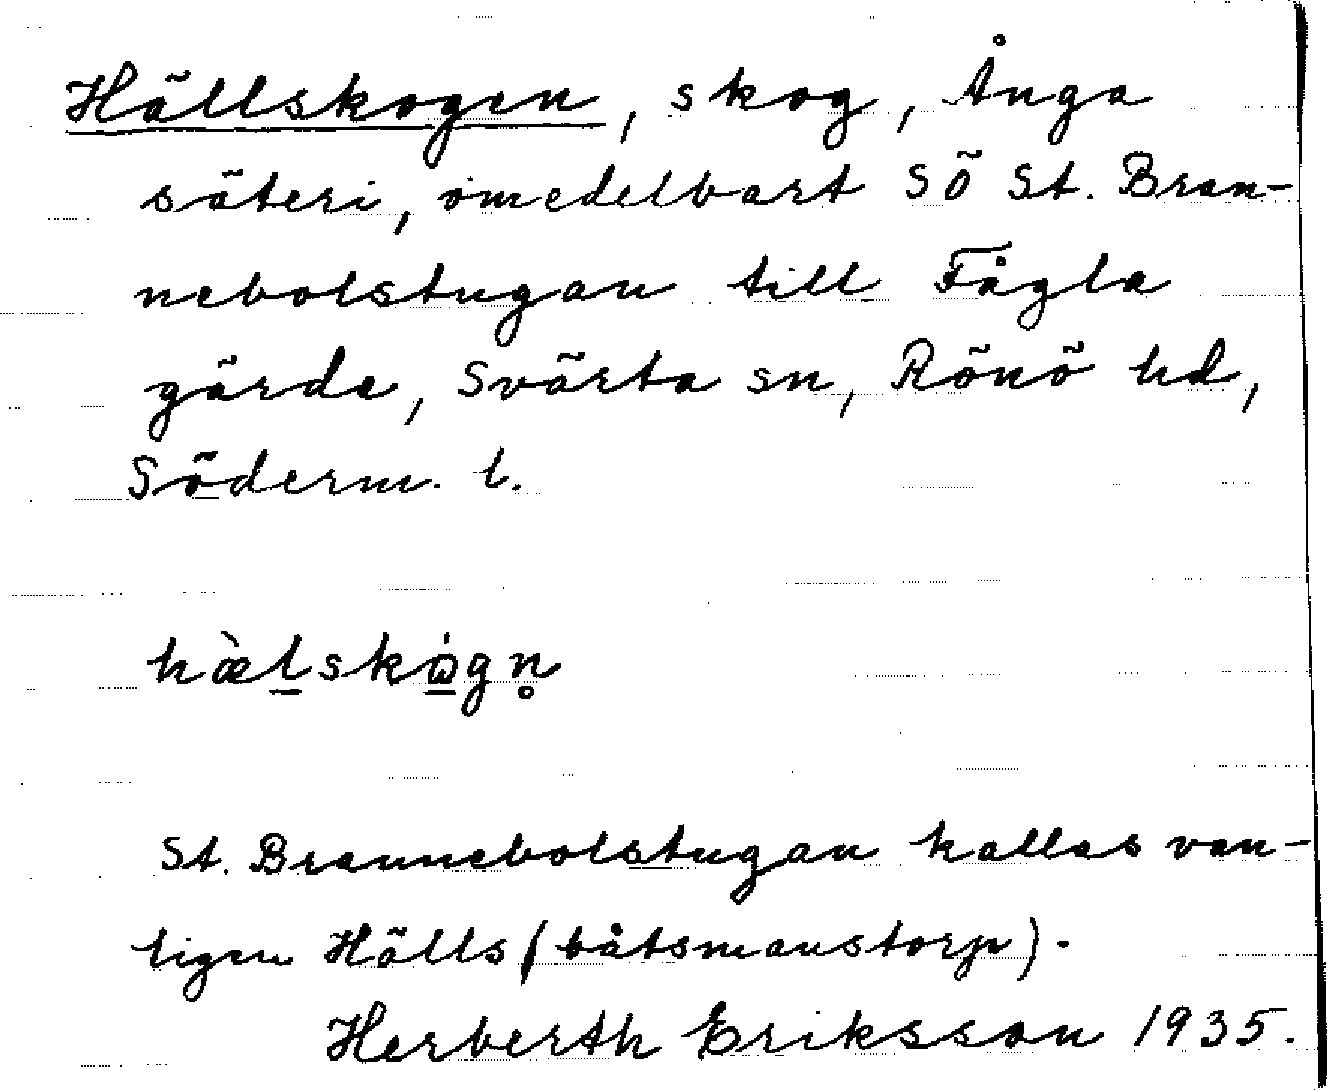 Hällskogen, skog, Ånga
säteri, omedelbart SÖ St. Bran-
nebolstugan till Fågla
gärde, Svärta sn, Rönö hd,
Söderm. l.
hæ̀l̲skɷ̲́gn̥
St. Brannebolstugan kallas van-
ligen Hälls (båtsmanstorp).
Herberth Eriksson 1935.